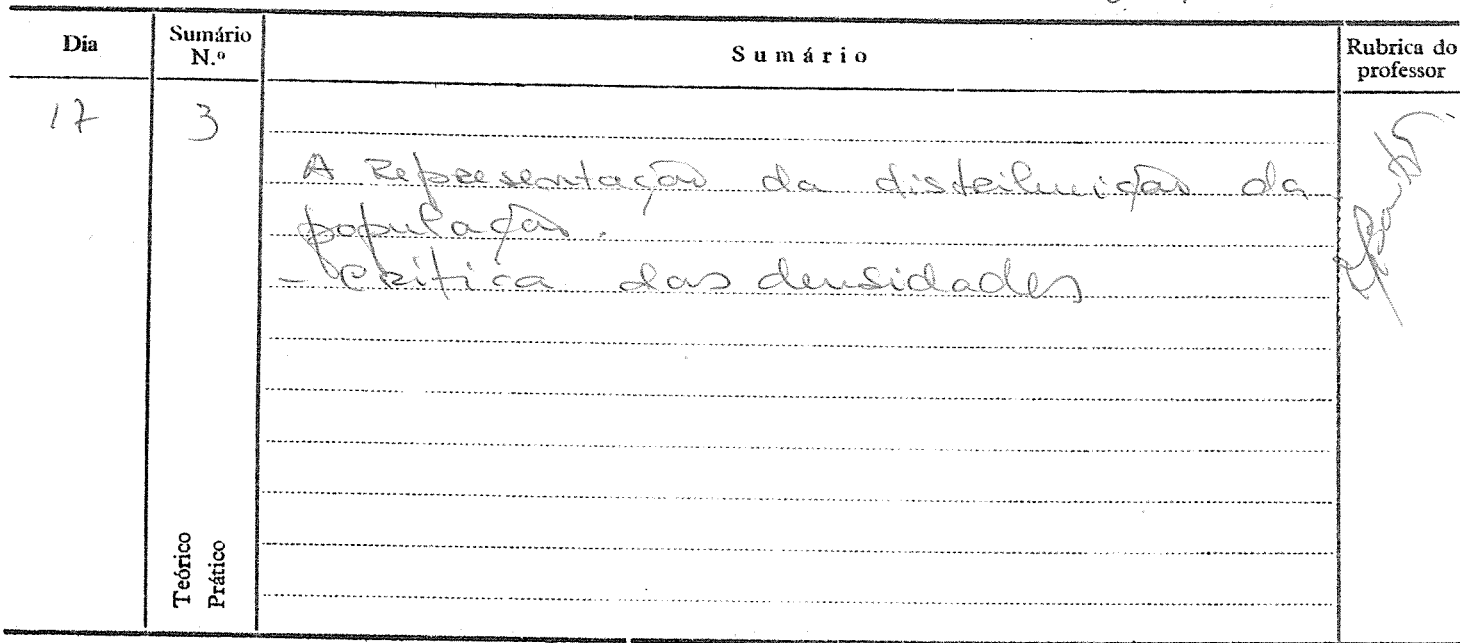 Dia
Sumário N.º
Sumário
Rubrica do professor
17
3
A Representação da distribuição da
população.
- Crítica das densidades
Teórico
Prático